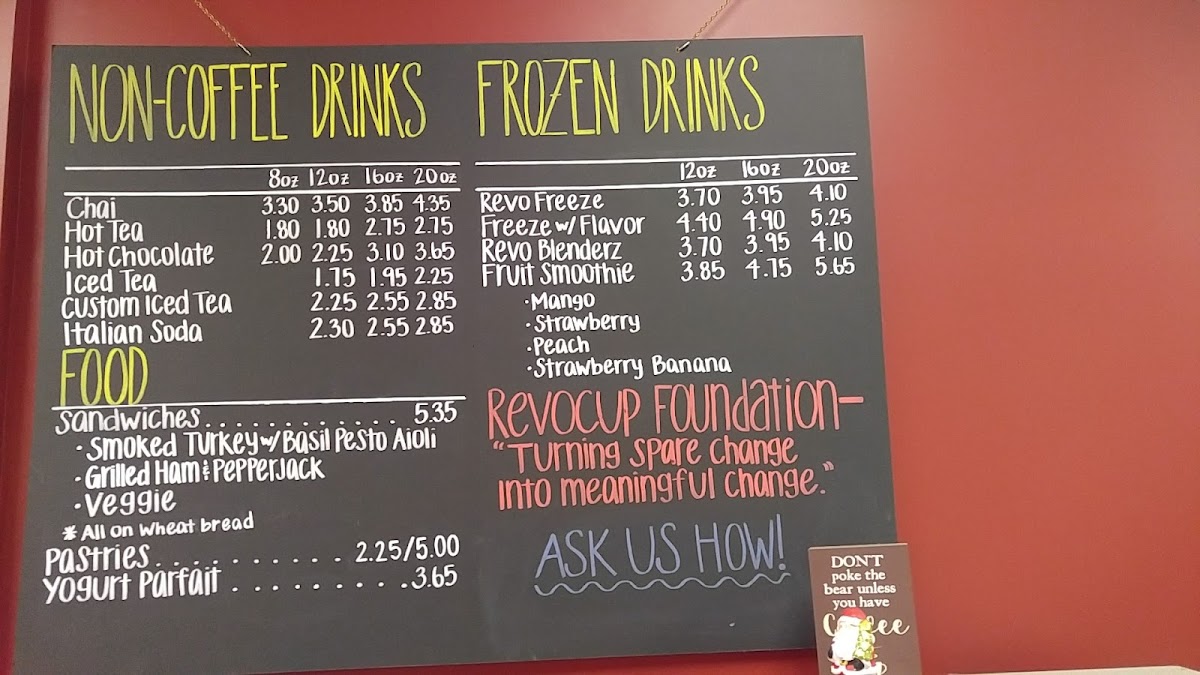 NON-COFFEE DRINKS
8oz 12oz 16oz 20oz
Chai 3.30 3.50 3.85 4.35
Hot Tea 1.80 1.80 2.75 2.75
Hot Chocolate 2.00 2.25 3.10 3.65
Iced Tea 1.75 1.95 2.25
Custom Iced Tea 2.25 2.55 2.85
Italian Soda 2.30 2.55 2.85
FOOD
Sandwiches............ 5.35
• Smoked Turkey w/ Basil Pesto Aioli
• Grilled Ham & Pepperjack
• Veggie
* All on wheat bread
Pastries.......... 2.25/5.00
Yogurt Parfait .........3.65
FROZEN DRINKS
12oz 16oz 20oz
Revo Freeze 3.70 3.95 4.10
Freeze w/ Flavor 4.40 4.90 5.25
Revo Blenderz 3.70 3.95 4.10
Fruit Smoothie 3.85 4.75 5.65
• Mango
• Strawberry
• Peach
• Strawberry Banana
REVOCUP FOUNDATION-
"Turning spare change
into meaningful change."
ASK US HOW!
DON'T
poke the
bear unless
you have
Coffee